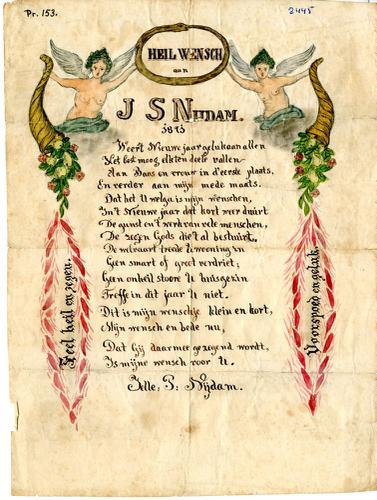 Pr. 153.
2445
HEIL WENSCH
aan
J S NIJDAM.
1873
'k Weerst Nieuwe jaar geluk aan allen
Het best moog, elk ten deele vallen
Aan Baas en vrouw in d'eerste plaats,
En verder aan mijn mede maats.
Dat het U welga is mijn wenschen,
In't Nieuwe jaar dat kort weer duurt
De gunst en't werk van vele menschen,
De zegen Gods die't al bestuurt,
De welvaart treede Uw woning in
Geen smart of groot verdriet,
Geen onheil stoore U huisgezin
Treffe in dit jaar U niet.
Dit is mijn wenschje klein en kort,
Mijn wensch en bede nu,
Dat Gij daarmee gezegend wordt,
Is mijne wensch voor U.
Jelle, P: Nijdam.
Veel heil en zegen.
Voorspoed en geluk.